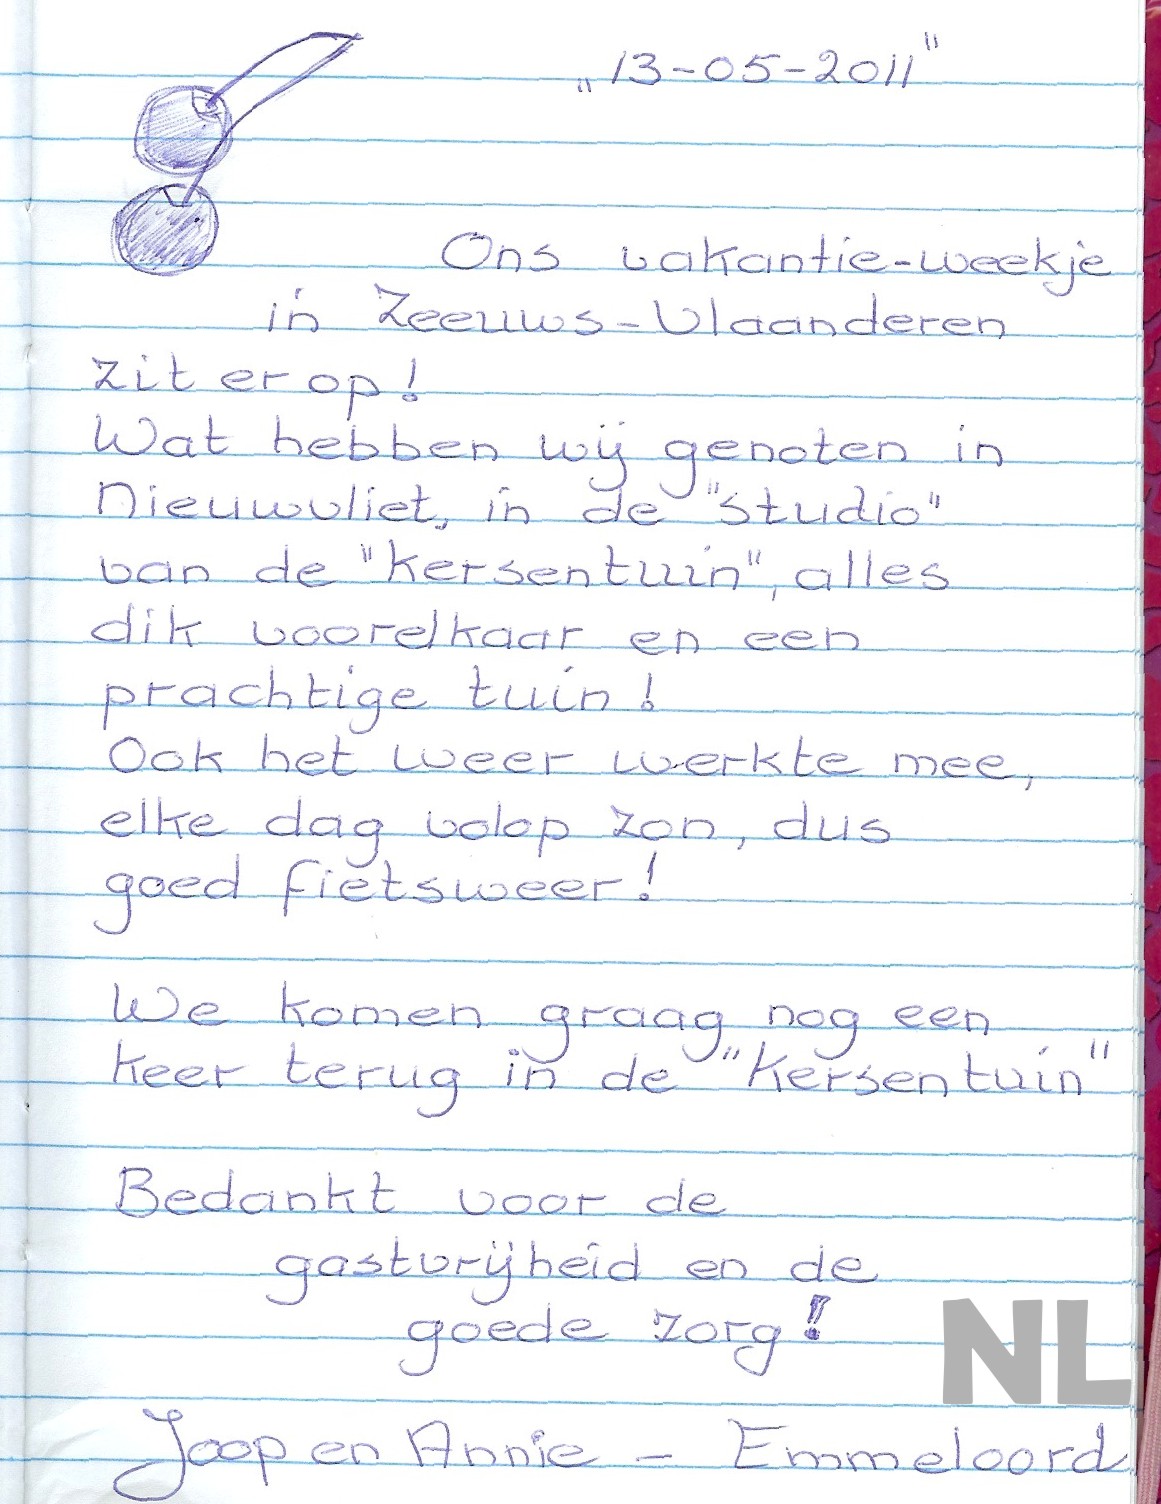 „13-05-2011"
Ons vakantie-weekje
in Zeeuws-Vlaanderen
zit er op!
Wat hebben wij genoten in
Nieuwvliet, in de "studio"
van de "Kersentuin", alles
dik voorelkaar en een
prachtige tuin!
Ook het weer werkte mee,
elke dag volop zon, dus
goed fietsweer!
We komen graag nog een
keer terug in de "Kersentuin"
Bedankt voor de
gastvrijheid en de
goede zorg!
NL
Joop en Annie - Emmeloord